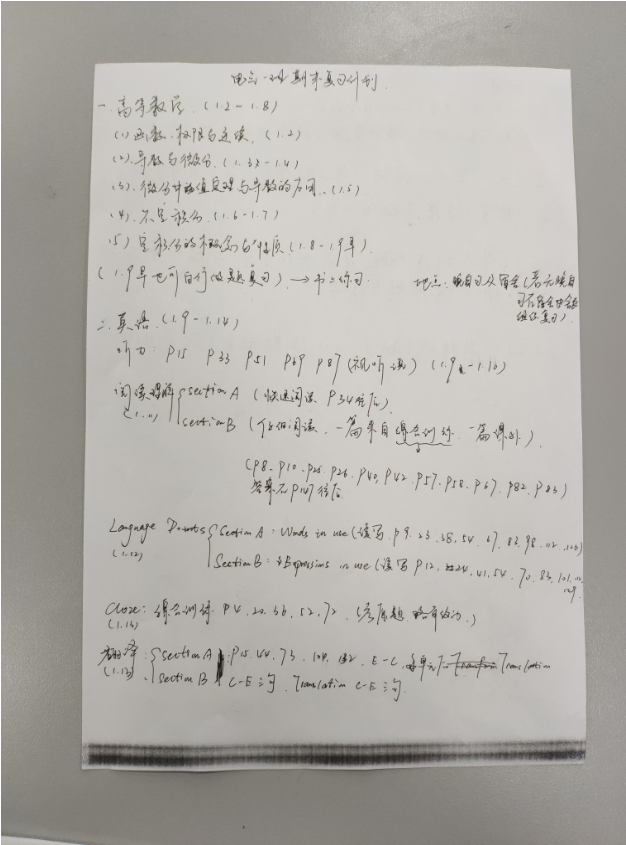 期末复习计划
一、高等数学 (1.2-1.8)
(1) 函数、极限与连续 (1.2)
(2) 导数与微分 (1.3-1.4)
(3) 微分中值定理与导数的应用 (1.5)
(4) 不定积分 (1.6-1.7)
(5) 定积分的概念与性质 (1.8-1.9早)
(1.9早也可自行做题复习) → 书上练习
地点: 晚自习及宿舍 (若无晚自
习在宿舍
组织复习)
二、英语 (1.9-1.14)
听力: P15 P33 P51 P69 P87 (视听说)
阅读理解 Section A (快速阅读 P34往后)
Section B (仔细阅读, 一篇来自综合训练 一篇课外)
(P8. P10. P25. P26. P40. P42. P57. P58. P67. P82. P83)
答案在P147往后
Language Points Section A: Words in use (读写 P9. 23. 38. 54. 67. 83. 98. 112.
(1.12)
Section B: Expressions in use (读写 P12. 24. 41. 54. 70. 83. 101.
Cloze: 综合训练 P4. 20. 36. 52. 72 (考原题 略有改动)
(1.13)
翻译: Section A: P15 44. 73. E-C, Translation
(1.13)
Section B C-E 三句, Translation C-E 三句.